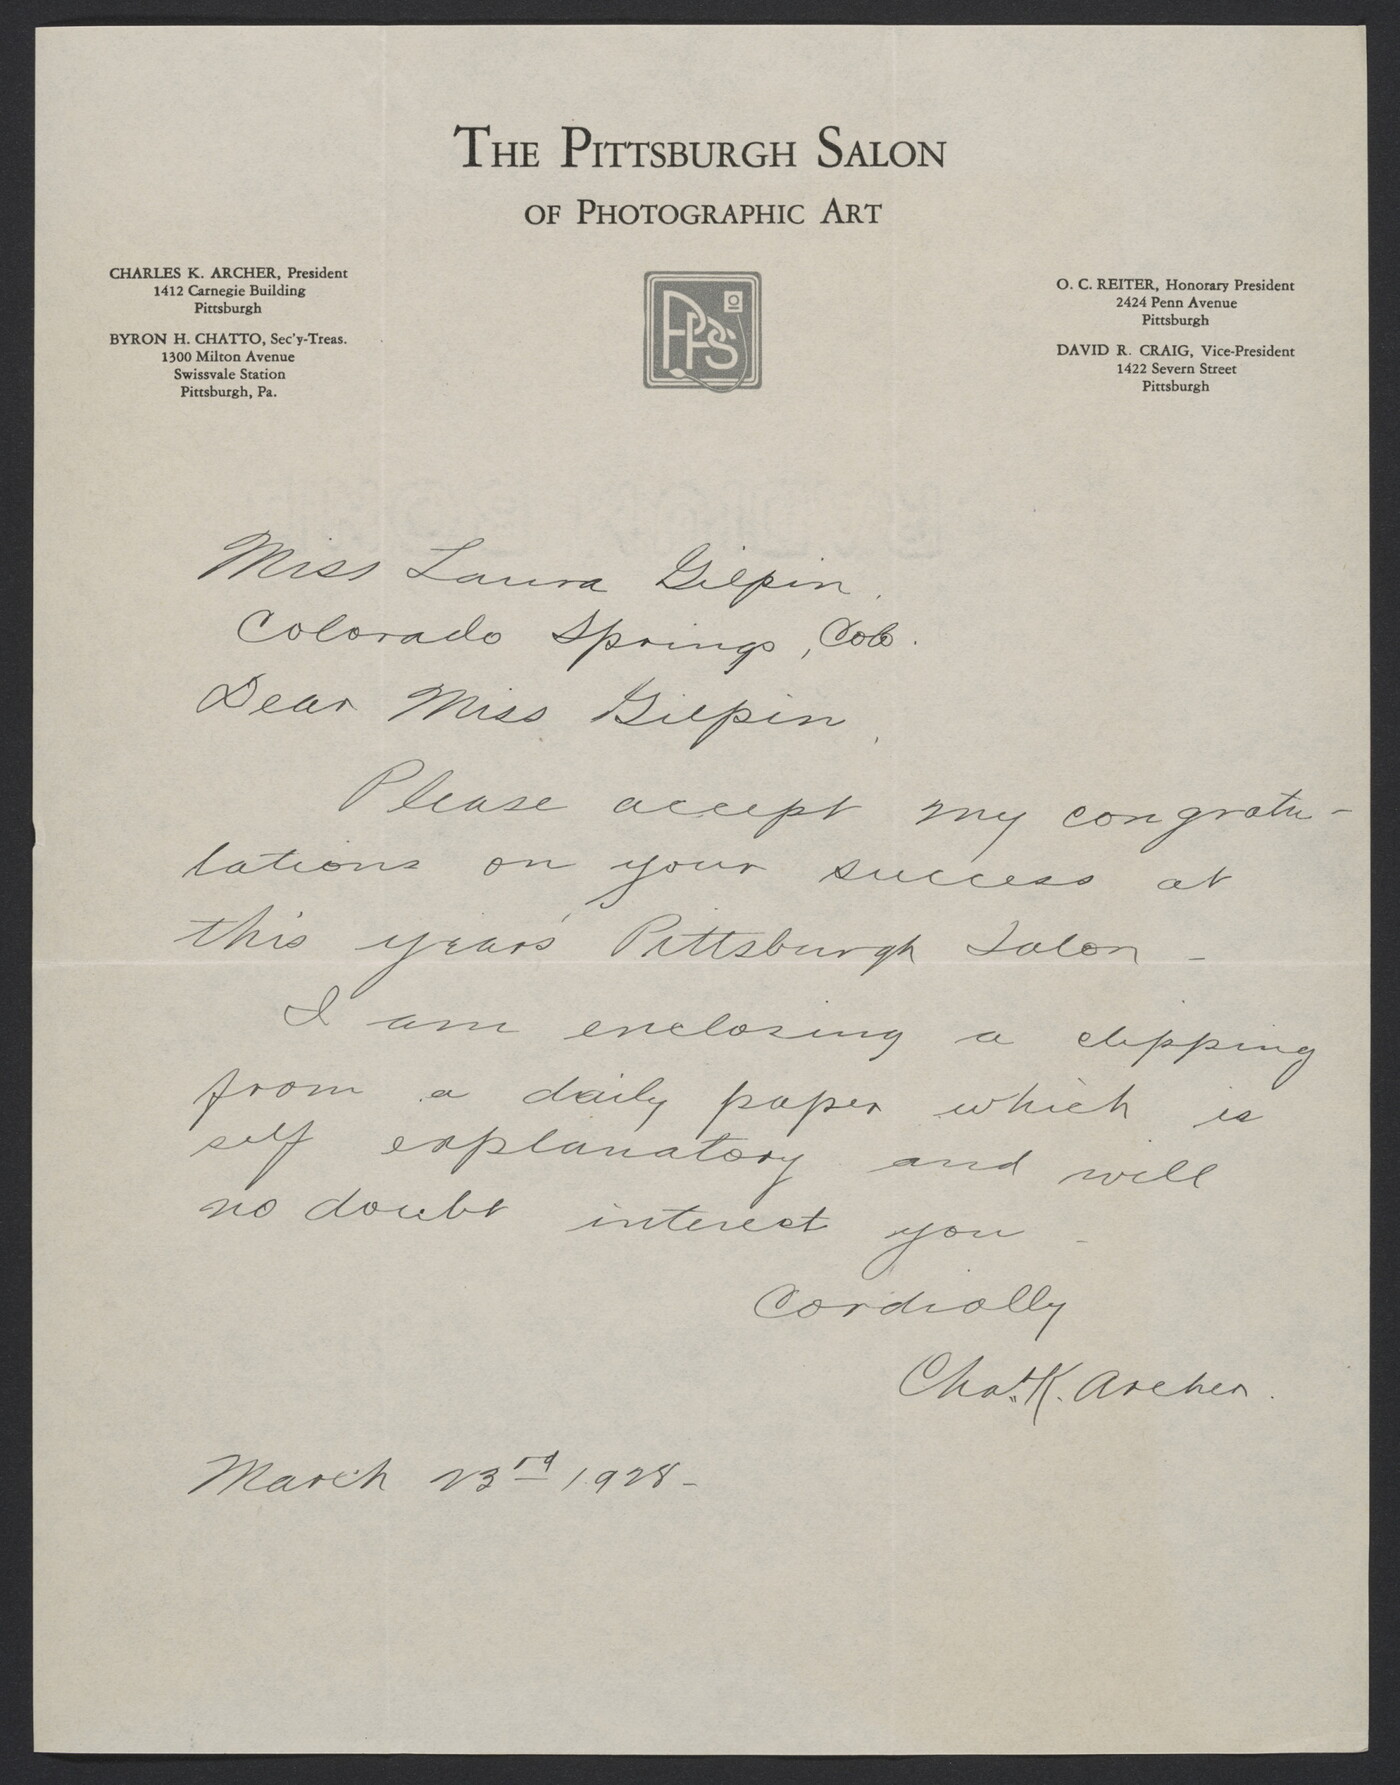 THE PITTSBURGH SALON
OF PHOTOGRAPHIC ART
CHARLES K. ARCHER, President
1412 Carnegie Building
Pittsburgh
BYRON H. CHATTO, Sec'y-Treas.
1300 Milton Avenue
Swissvale Station
Pittsburgh, Pa.
PPS
O. C. REITER, Honorary President
2424 Penn Avenue
Pittsburgh
DAVID R. CRAIG, Vice-President
1422 Severn Street
Pittsburgh
Miss Laura Gilpin.
Colorado Springs, Colo.
Dear Miss Gilpin,
Please accept my congratu-
lations on your success at
this years' Pittsburgh Salon -
I am enclosing a clipping
from a daily paper which is
self explanatory and will
no doubt interest you -
Cordially
Chas. K. Archer.
March 23rd 1928 -